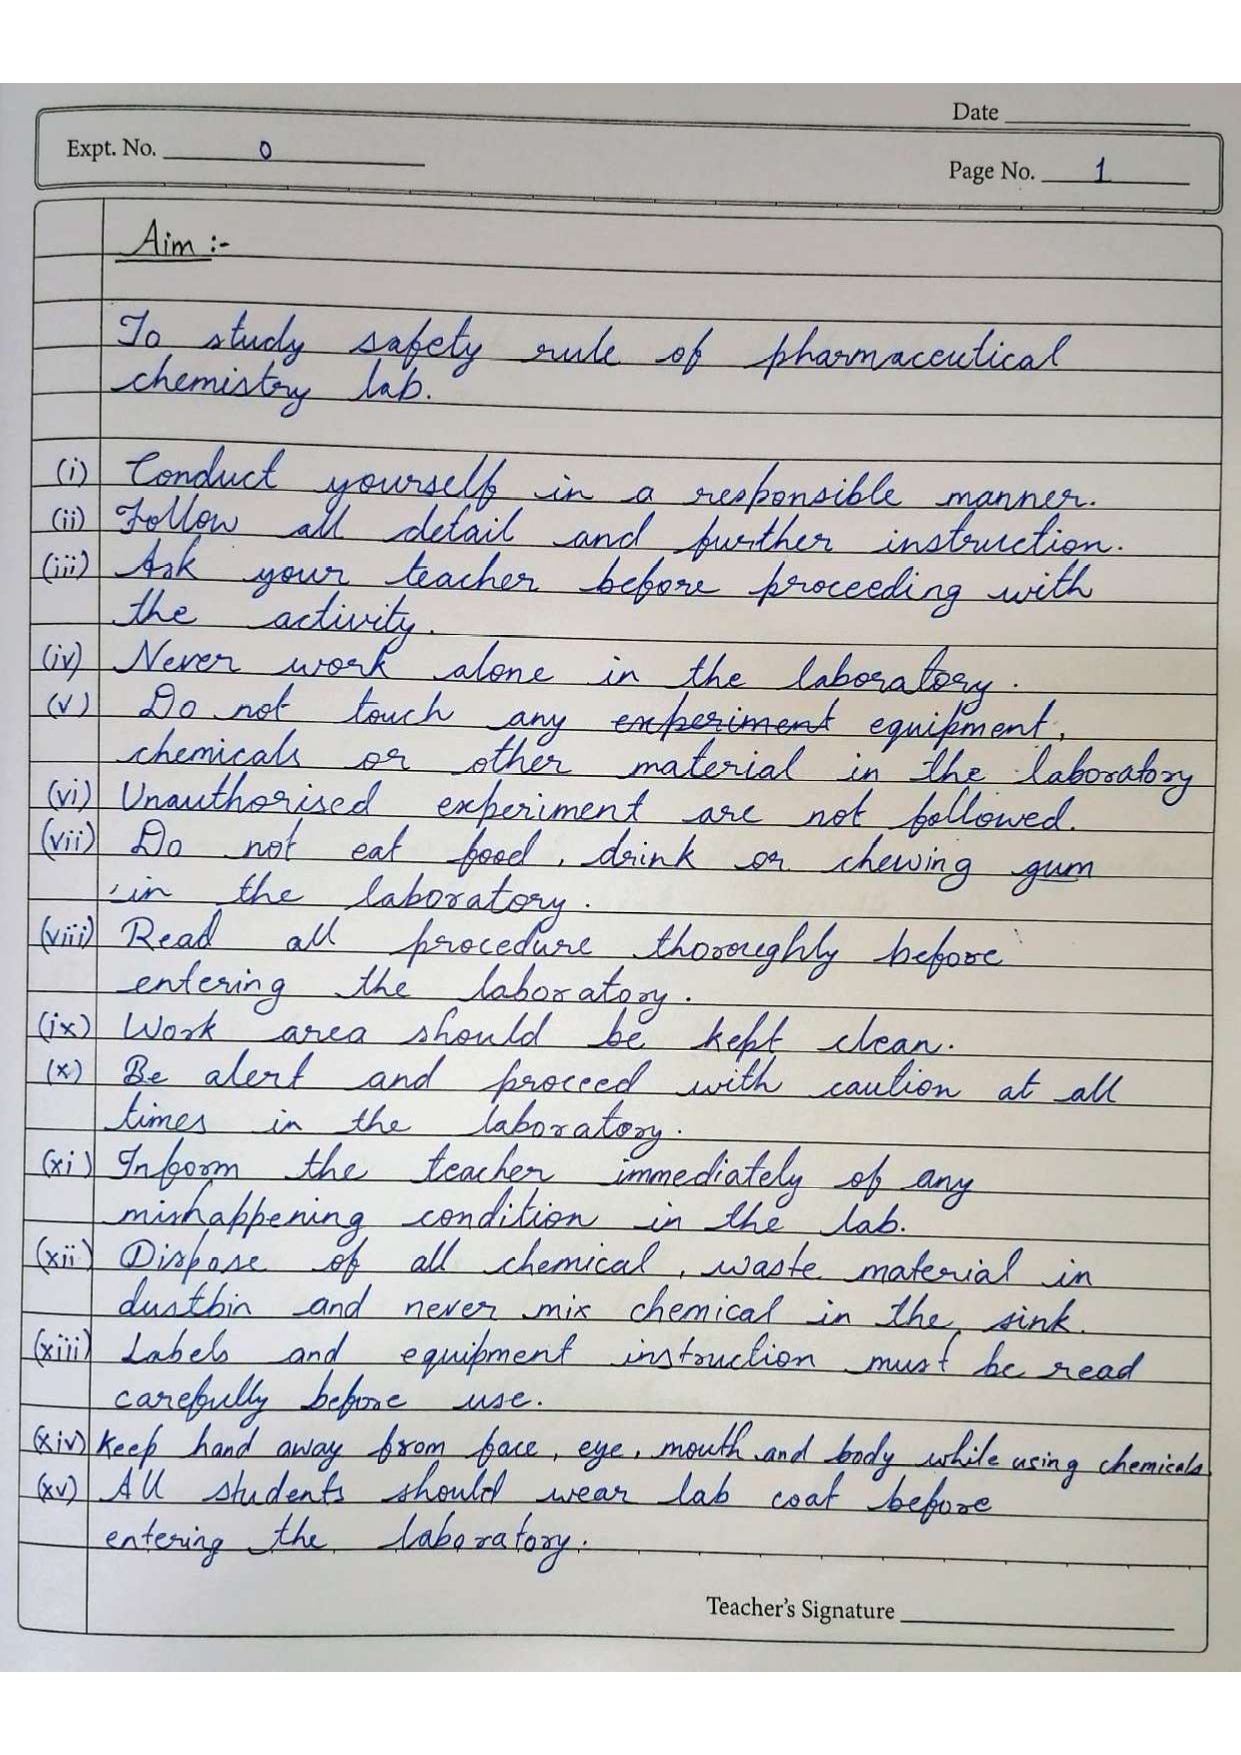 Date
Expt. No. 0
Page No. 1
Aim :-
To study safety rule of pharmaceutical
chemistry lab.
(i) Conduct yourself in a responsible manner.
(ii) Follow all detail and further instruction.
(iii) Ask your teacher before proceeding with
the activity.
(iv) Never work alone in the laboratory.
(v) Do not touch any experiment equipment,
chemicals or other material in the laboratory
(vi) Unauthorised experiment are not followed.
(vii) Do not eat food, drink or chewing gum
in the laboratory.
(viii) Read all procedure thoroughly before
entering the laboratory.
(ix) Work area should be kept clean.
(x) Be alert and proceed with caution at all
times in the laboratory.
(xi) Inform the teacher immediately of any
mishappening condition in the lab.
(xii) Dispose of all chemical, waste material in
dustbin and never mix chemical in the sink.
(xiii) Labels and equipment instruction must be read
carefully before use.
(xiv) Keep hand away from face, eye, mouth and body while using chemicals
(xv) All students should wear lab coat before
entering the laboratory.
Teacher's Signature